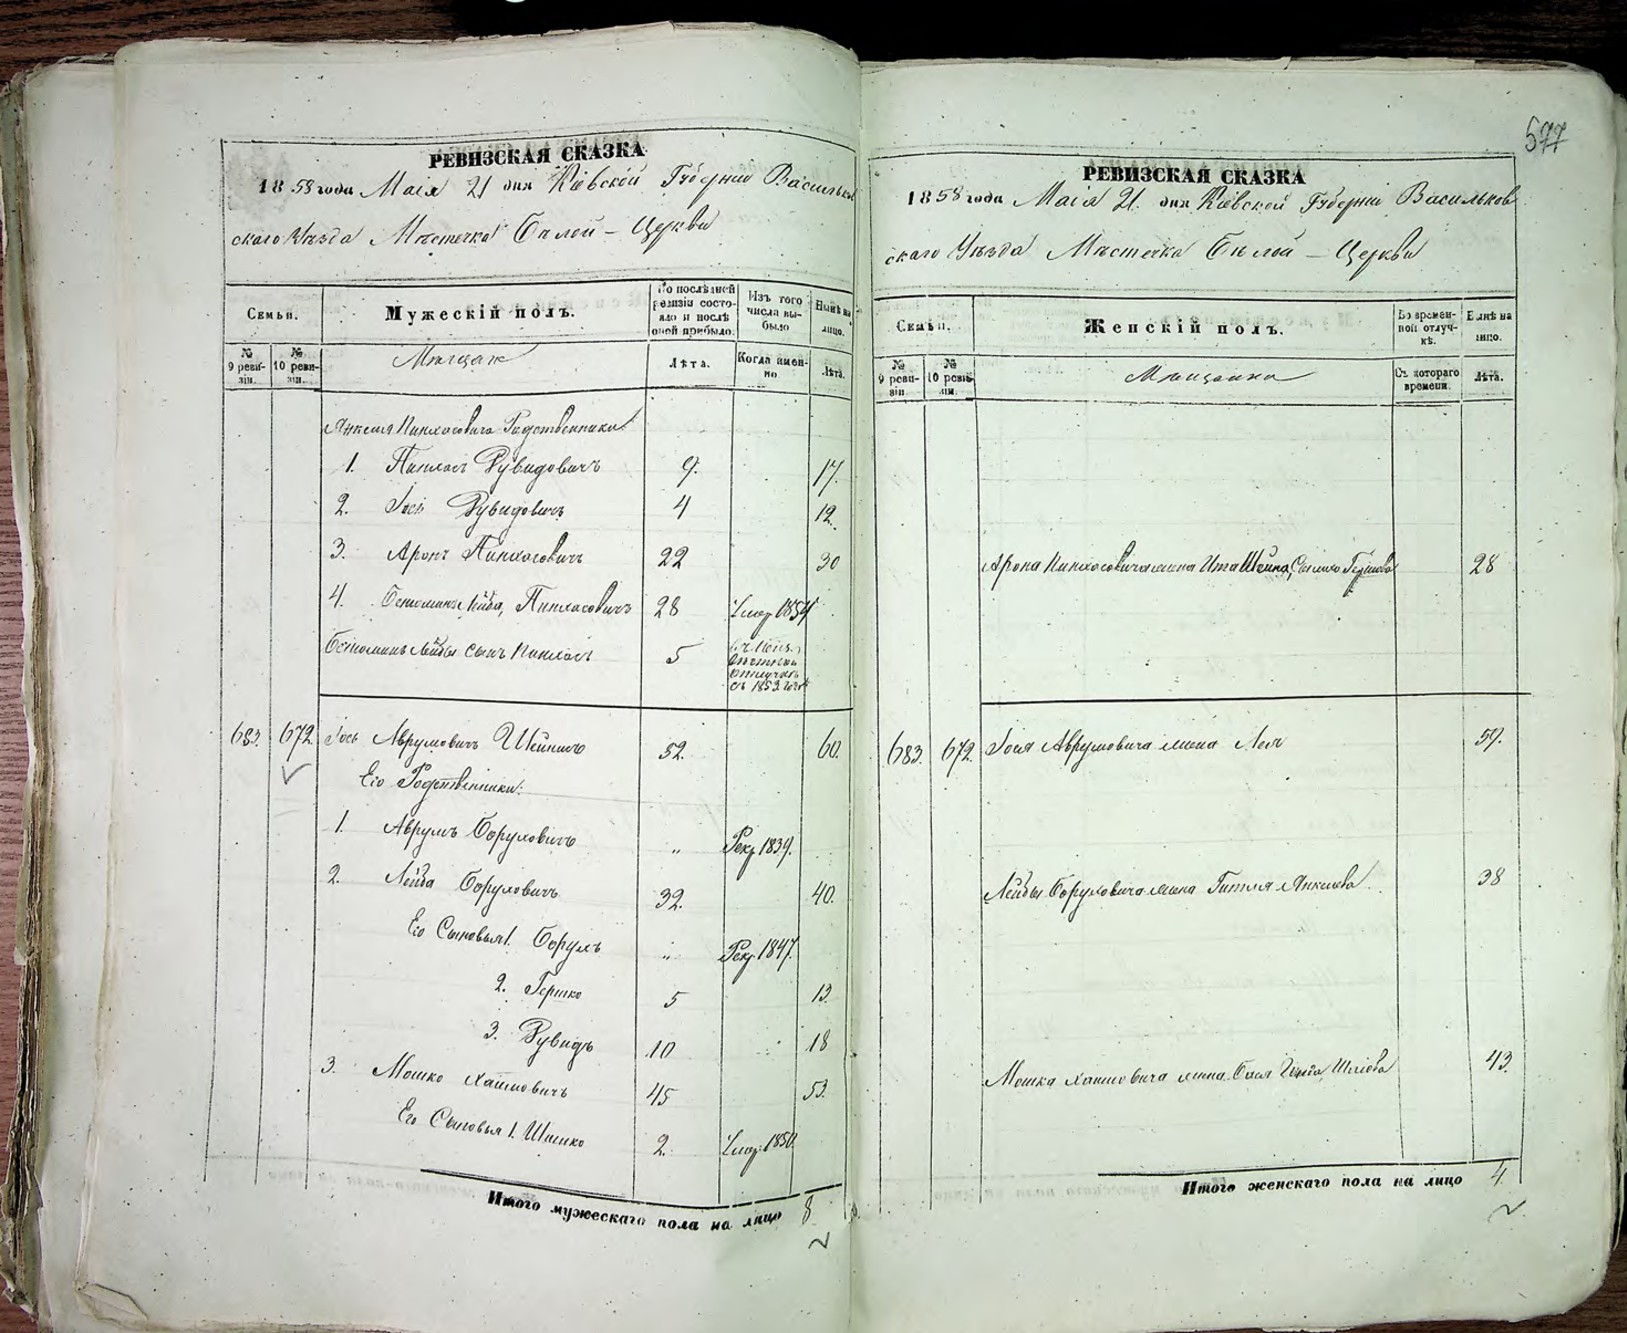 577
РЕВИЗСКАЯ СКАЗКА
1858 года Маія 21 дня Кіевской Губерніи Васильков
скаго Уѣзда Мѣстечка Бѣлой - Церкви
Семьи.
Мужескій полъ.
По послѣдней ревизіи состояло и послѣ оной прибыло.
Изъ того числа выбыло
Нынѣ на лицо.
№ 9 ревизіи.
№ 10 ревизіи.
Мѣщане
Лѣта.
Когда именно
Лѣта.
Янкеля Пинхасовича Родственники
1. Пинхасъ Рувидовичъ 9. 17.
2. Іось Рувидовичъ 4 12.
3. Аронъ Пинхасовичъ 22 30
4. Лейба, Пинхасовичъ 28 Умер 1854
Лейбы сынъ Пинхасъ 5 отлучкѣ съ 1853 года
683. 672 Іось Аврумовичъ 52. 60.
Его Родственники:
1. Аврумъ Боруховичъ „ Рекр 1839.
2. Лейба Боруховичъ 32. 40.
Его Сыновья 1. Борухъ „ Рекр 1847.
2. Гершко 5 13.
3. Рувидъ 10 18
3. Мошко Хаимовичъ 45 53.
Его Сыновья 1. Шлемко 2. Умер 1850.
Итого мужескаго пола на лицо 8
РЕВИЗСКАЯ СКАЗКА
1858 года Маія 21. дня Кіевской Губерніи Васильков
скаго Уѣзда Мѣстечка Бѣлой - Церкви
Семьи.
Женскій полъ.
Во временной отлучкѣ.
Нынѣ на лицо.
№ 9 ревизіи
№ 10 ревизіи.
Мѣщанки
Съ котораго времени.
Лѣта.
Арона Пинхасовича жена Ита Шейна, 28
683. 672. Іося Аврумовича жена Лея 59.
Лейбы Боруховича жена Гитля Янкелева 38
Мошка Хаимовича жена Бася 43.
Итого женскаго пола на лицо 4.